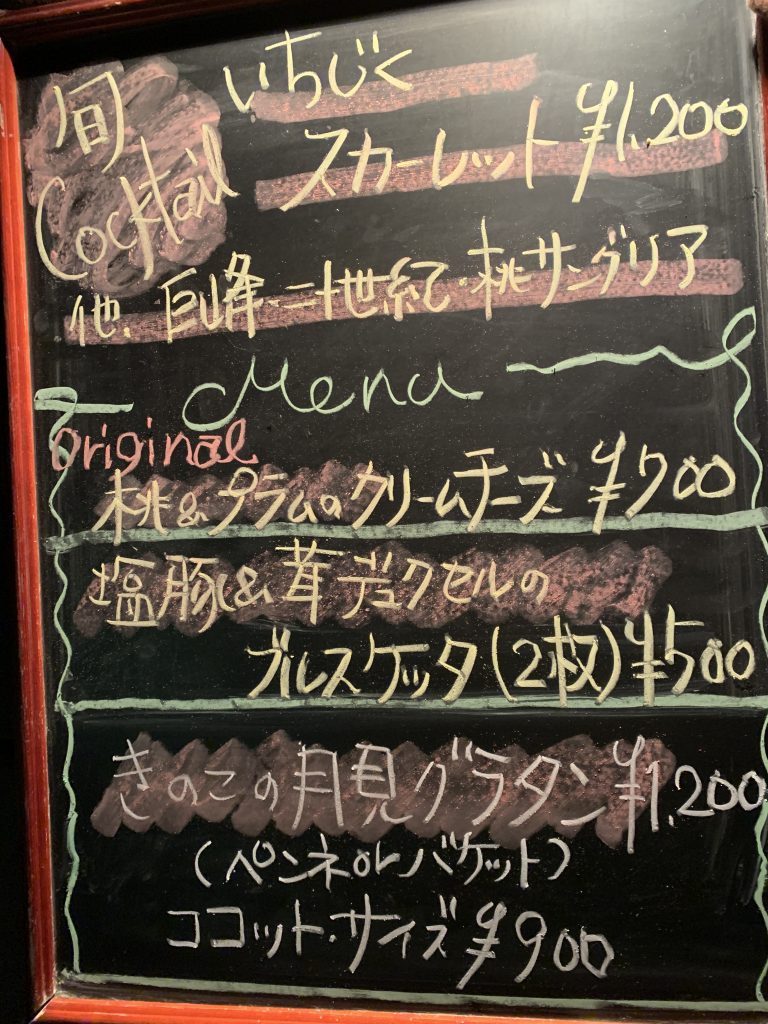 旬 いちじく
Cocktail スカーレット ¥1,200
他、巨峰・二十世紀・桃サングリア
Menu
original
桃&プラムのクリームチーズ ¥700
塩豚&茸デュクセルの
ブルスケッタ(2枚)¥500
きのこの月見グラタン ¥1,200
(ペンネorバケット)
ココット・サイズ ¥900